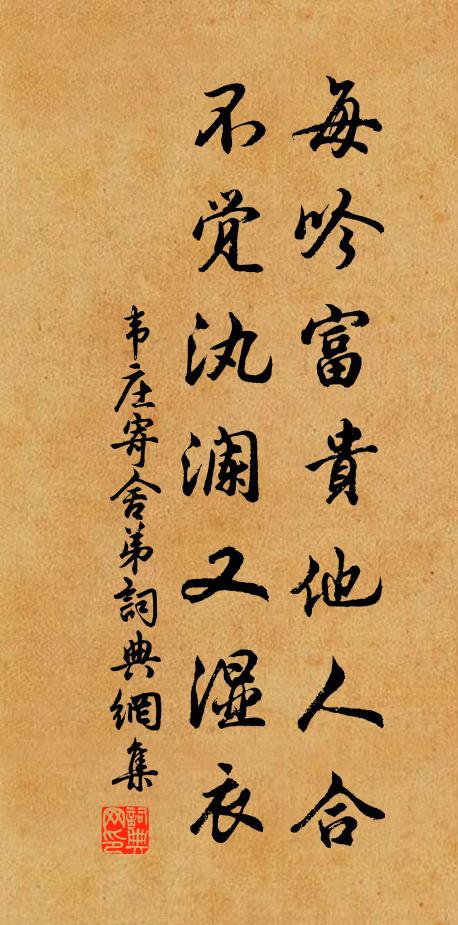 每吟富貴他人合
不觉汍澜又湿衣
韦庄寄舍弟詞典網集
詞典网印